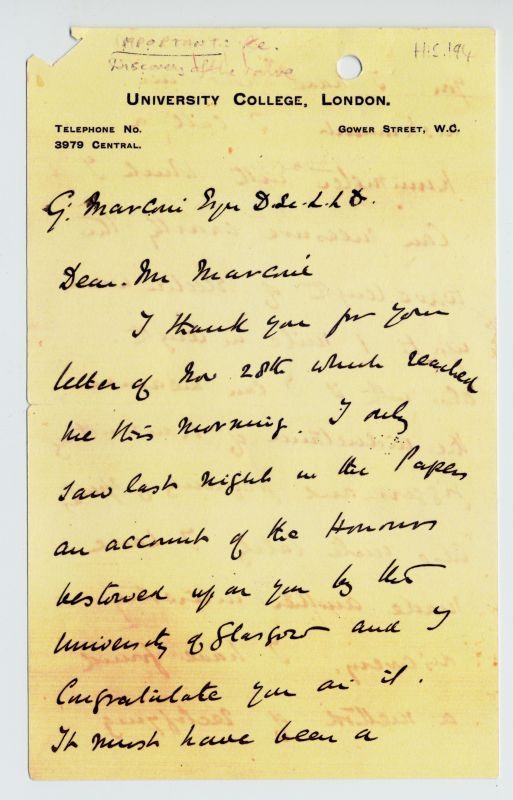 IMPORTANT: Re.
Discovery of the valve
H.S. 194
UNIVERSITY COLLEGE, LONDON.
TELEPHONE No.
3979 CENTRAL.
GOWER STREET, W.C.
G. Marconi Esqre D.Sc. L.L.D.
Dear Mr Marconi
I thank you for your
letter of Nov 28th which reached
me this morning. I only
saw last night in the Papers
an account of the Honours
bestowed upon you by the
University of Glasgow and I
Congratulate you on it.
It must have been a